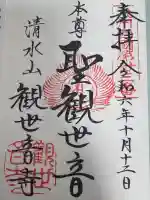 奉拝 令和六年十月十三日
本尊 聖観世音
清水山 観世音寺